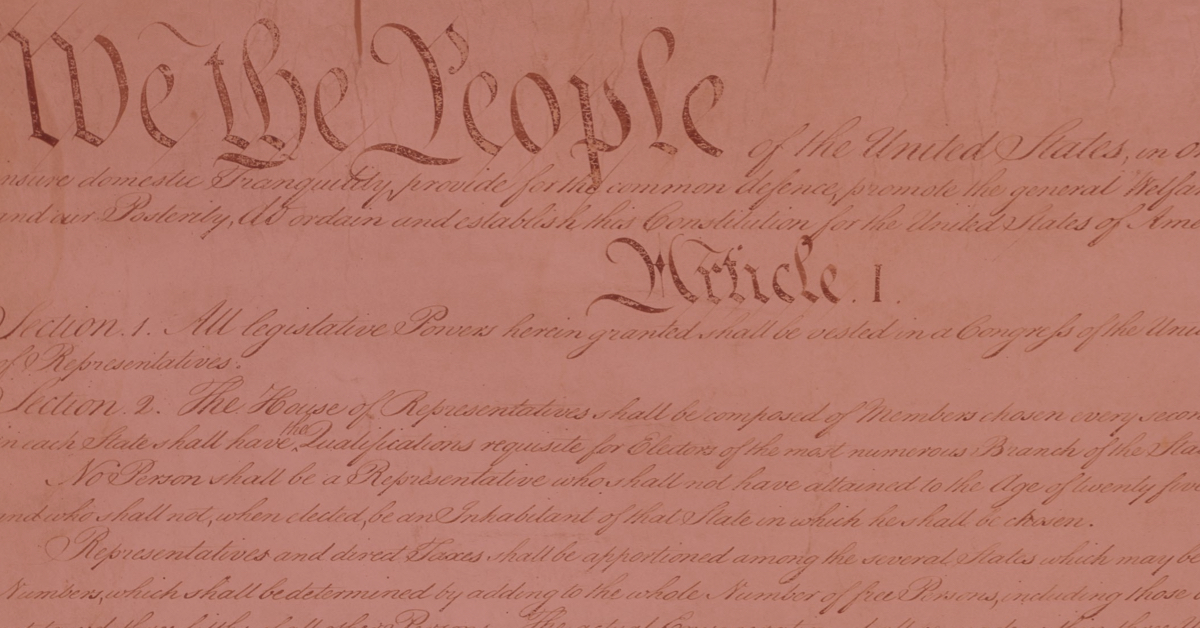 We the People of the United States, in
nsure domestic Tranquility, provide for the common defence, promote the general Welfa
and our Posterity, do ordain and establish this Constitution for the United States of Ame
Article. I.
Section. 1. All legislative Powers herein granted shall be vested in a Congress of the Uni
of Representatives.
Section. 2. The House of Representatives shall be composed of Members chosen every secon
in each State shall have the Qualifications requisite for Electors of the most numerous Branch of the Stat
No Person shall be a Representative who shall not have attained to the Age of twenty five
and who shall not, when elected, be an Inhabitant of that State in which he shall be chosen.
Representatives and direct Taxes shall be apportioned among the several States which may be
Numbers, which shall be determined by adding to the whole Number of free Persons, including those